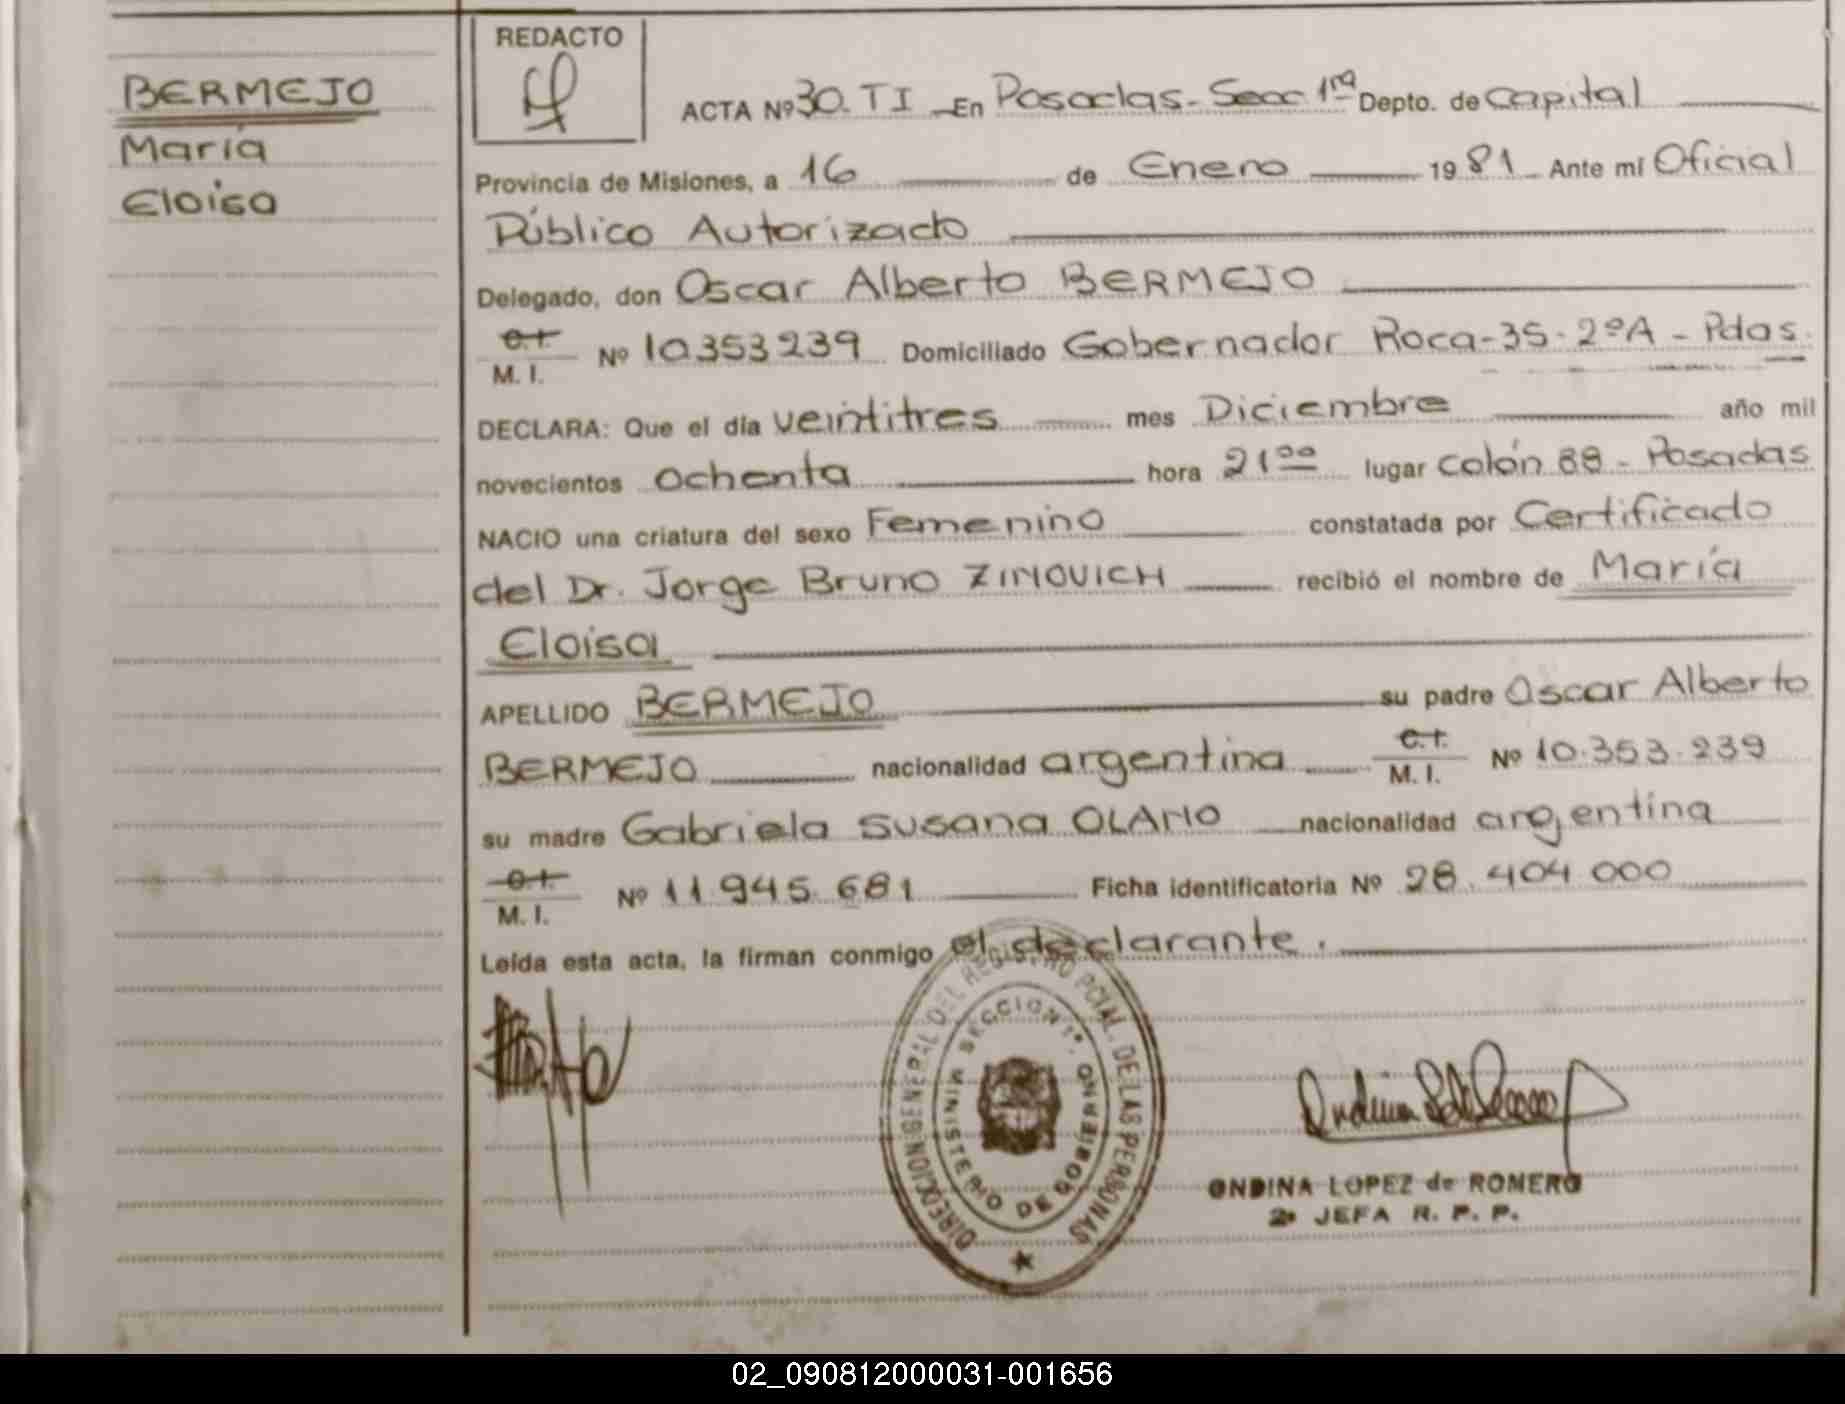 BERMEJO
María
Eloísa
REDACTO
ACTA Nº 30. TI En Posadas - Secc 1ra Depto. de Capital
Provincia de Misiones, a 16 de Enero 1981 Ante mí Oficial
Público Autorizado
Delegado, don Oscar Alberto BERMEJO
C.I.
M. I. Nº 10.353.239 Domiciliado Gobernador Roca-35-2ºA - Pdas.
DECLARA: Que el día veintitres mes Diciembre año mil
novecientos ochenta hora 21 00 lugar Colón 88 - Posadas
NACIO una criatura del sexo Femenino constatada por Certificado
del Dr. Jorge Bruno ZIMOVICH recibió el nombre de María
Eloísa
APELLIDO BERMEJO su padre Oscar Alberto
BERMEJO nacionalidad argentina C.I. M. I. Nº 10.353.239
su madre Gabriela Susana OLAHO nacionalidad argentina
C.I.
M. I. Nº 11.945.681 Ficha identificatoria Nº 28.404.000
Leída esta acta, la firman conmigo el declarante.
DIRECCION GENERAL DEL REGISTRO PCIAL. DE LAS PERSONAS
SECCION 1ª. MINISTERIO DE GOBIERNO
ONDINA LOPEZ de ROMERO
2ª JEFA R. P. P.
02_090812000031-001656